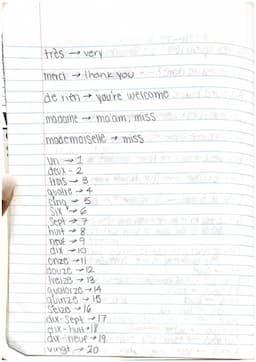 très → very
merci → thank you
de rien → you're welcome
madame → ma'am, miss
mademoiselle → miss
un → 1
deux - 2
trois → 3
quatre → 4
cinq → 5
six → 6
sept → 7
huit → 8
neuf → 9
dix → 10
onze → 11
douze → 12
treize → 13
quatorze → 14
quinze → 15
seize → 16
dix-sept → 17
dix-huit → 18
dix-neuf → 19
vingt → 20